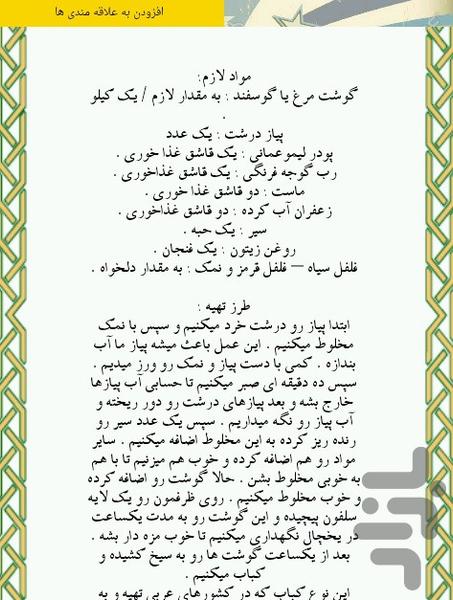 افزودن به علاقه مندی ها
مواد لازم:
گوشت مرغ یا گوسفند : به مقدار لازم / یک کیلو
.
پیاز درشت : یک عدد
پودر لیمو عمانی : یک قاشق غذا خوری .
رب گوجه فرنگی : یک قاشق غذاخوری .
ماست : دو قاشق غذا خوری .
زعفران آب کرده : دو قاشق غذاخوری .
سیر : یک حبه .
روغن زیتون : یک فنجان .
فلفل سیاه – فلفل قرمز و نمک : به مقدار دلخواه .
طرز تهیه :
ابتدا پیاز رو درشت خرد میکنیم و سپس با نمک
مخلوط میکنیم . این عمل باعث میشه پیاز ما آب
بندازه . کمی با دست پیاز و نمک رو ورز میدیم .
سپس ده دقیقه ای صبر میکنیم تا حسابی آب پیازها
خارج بشه و بعد پیازهای درشت رو دور ریخته و
آب پیاز رو نگه میداریم . سپس یک عدد سیر رو
رنده ریز کرده به این مخلوط اضافه میکنیم . سایر
مواد رو هم اضافه کرده و خوب هم میزنیم تا با هم
به خوبی مخلوط بشن . حالا گوشت رو اضافه کرده
و خوب مخلوط میکنیم . روی ظرفمون رو یک لایه
سلفون پیچیده و این گوشت رو به مدت یکساعت
در یخچال نگهداری میکنیم تا خوب مزه دار بشه .
بعد از یکساعت گوشت ها رو به سیخ کشیده و
کباب میکنیم .
این نوع کباب که در کشورهای عربی تهیه و به
بازار